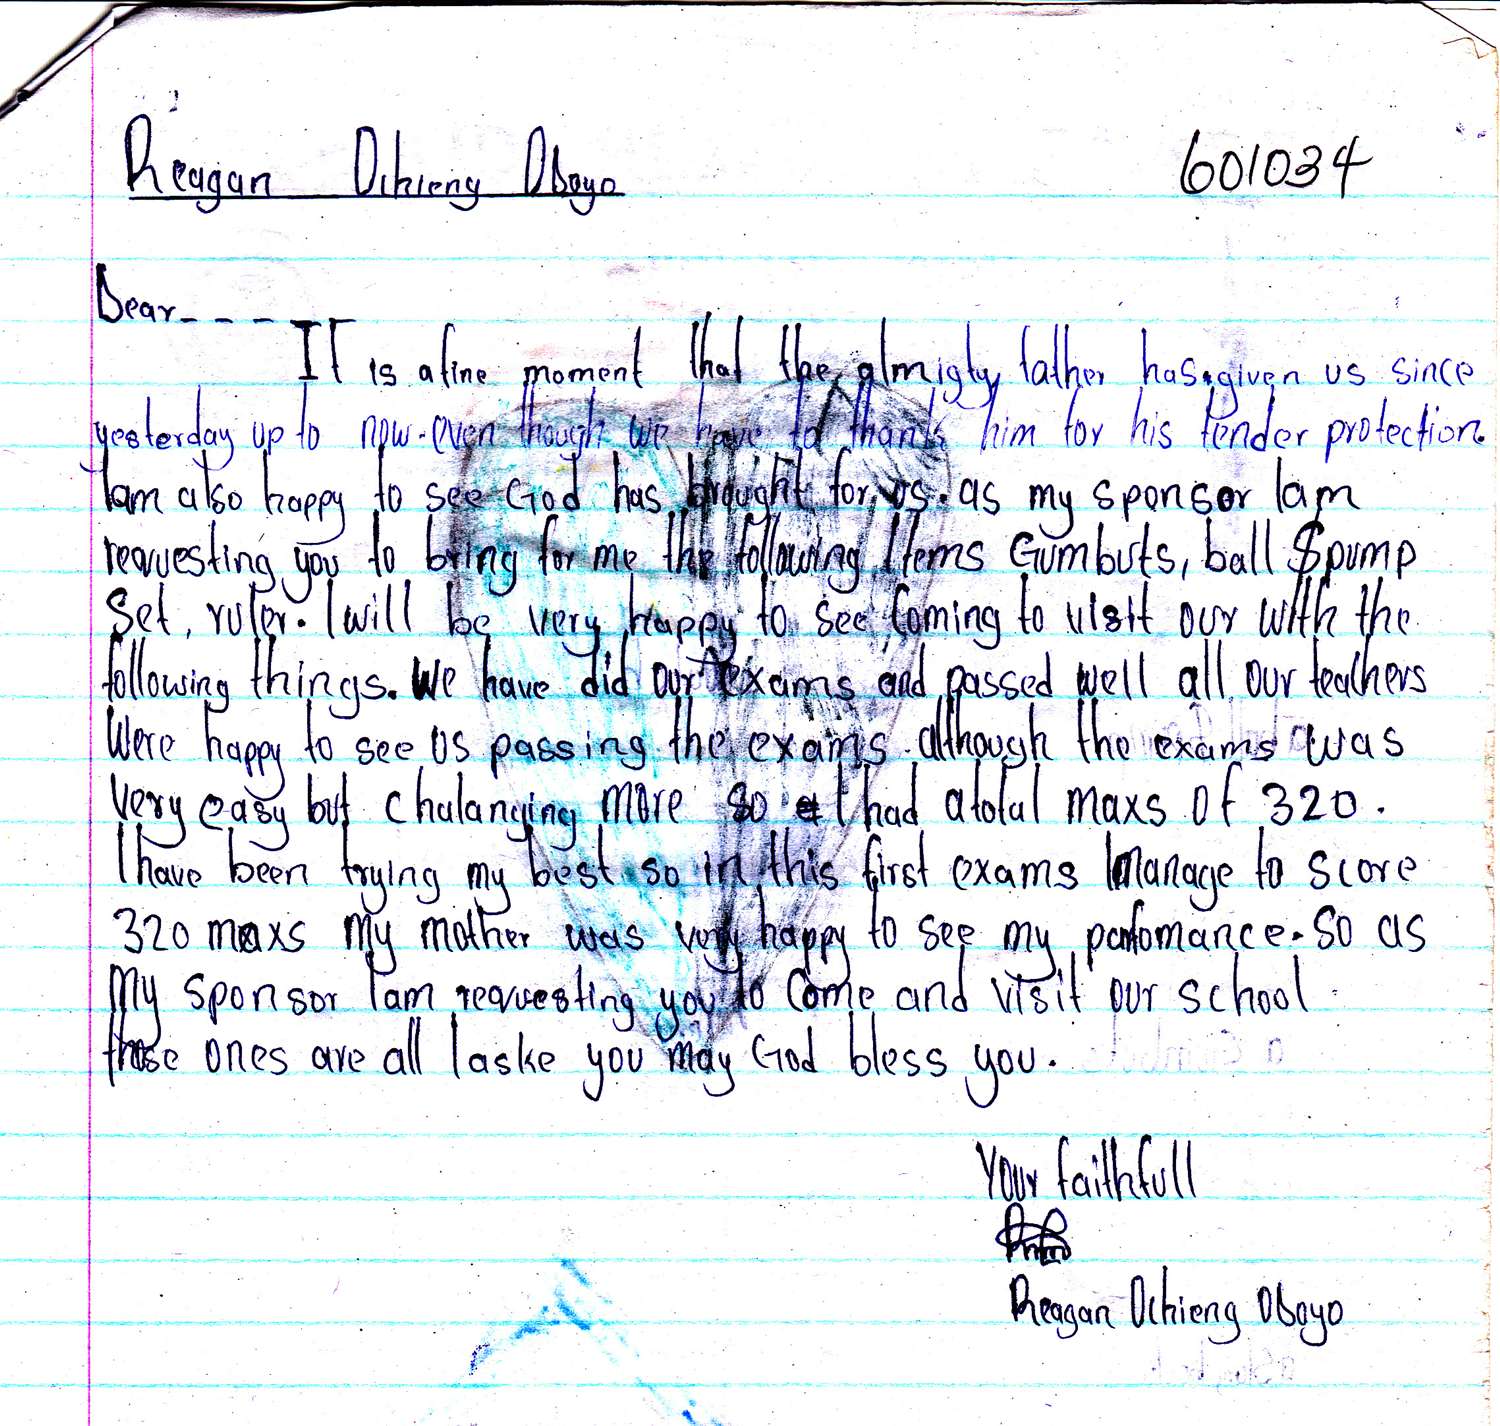 Reagan Ochieng Oboyo 601034
Dear_ _ _ _
IT is a fine moment that the almigty father has given us since
yesterday up to now. even though we have to thank him for his tender protection.
Iam also happy to see God has brought for us. as my sponsor Iam
requesting you to bring for me the following Items Gumbuts, ball $pump
Set, ruler. I will be very happy to see coming to visit our with the
following things. We have did our exams and passed well all our teachers
Were happy to see us passing the exams. although the exams was
very easy but chalanging more so I had atotal maxs of 320.
I have been trying my best so in this first exams Imanage to score
320 maxs My mother was very happy to see my perfomance. So as
My sponsor Iam requesting you to come and visit our school
those ones are all I aske you may God bless you.
Your faithfull
Reagan Ochieng Oboyo